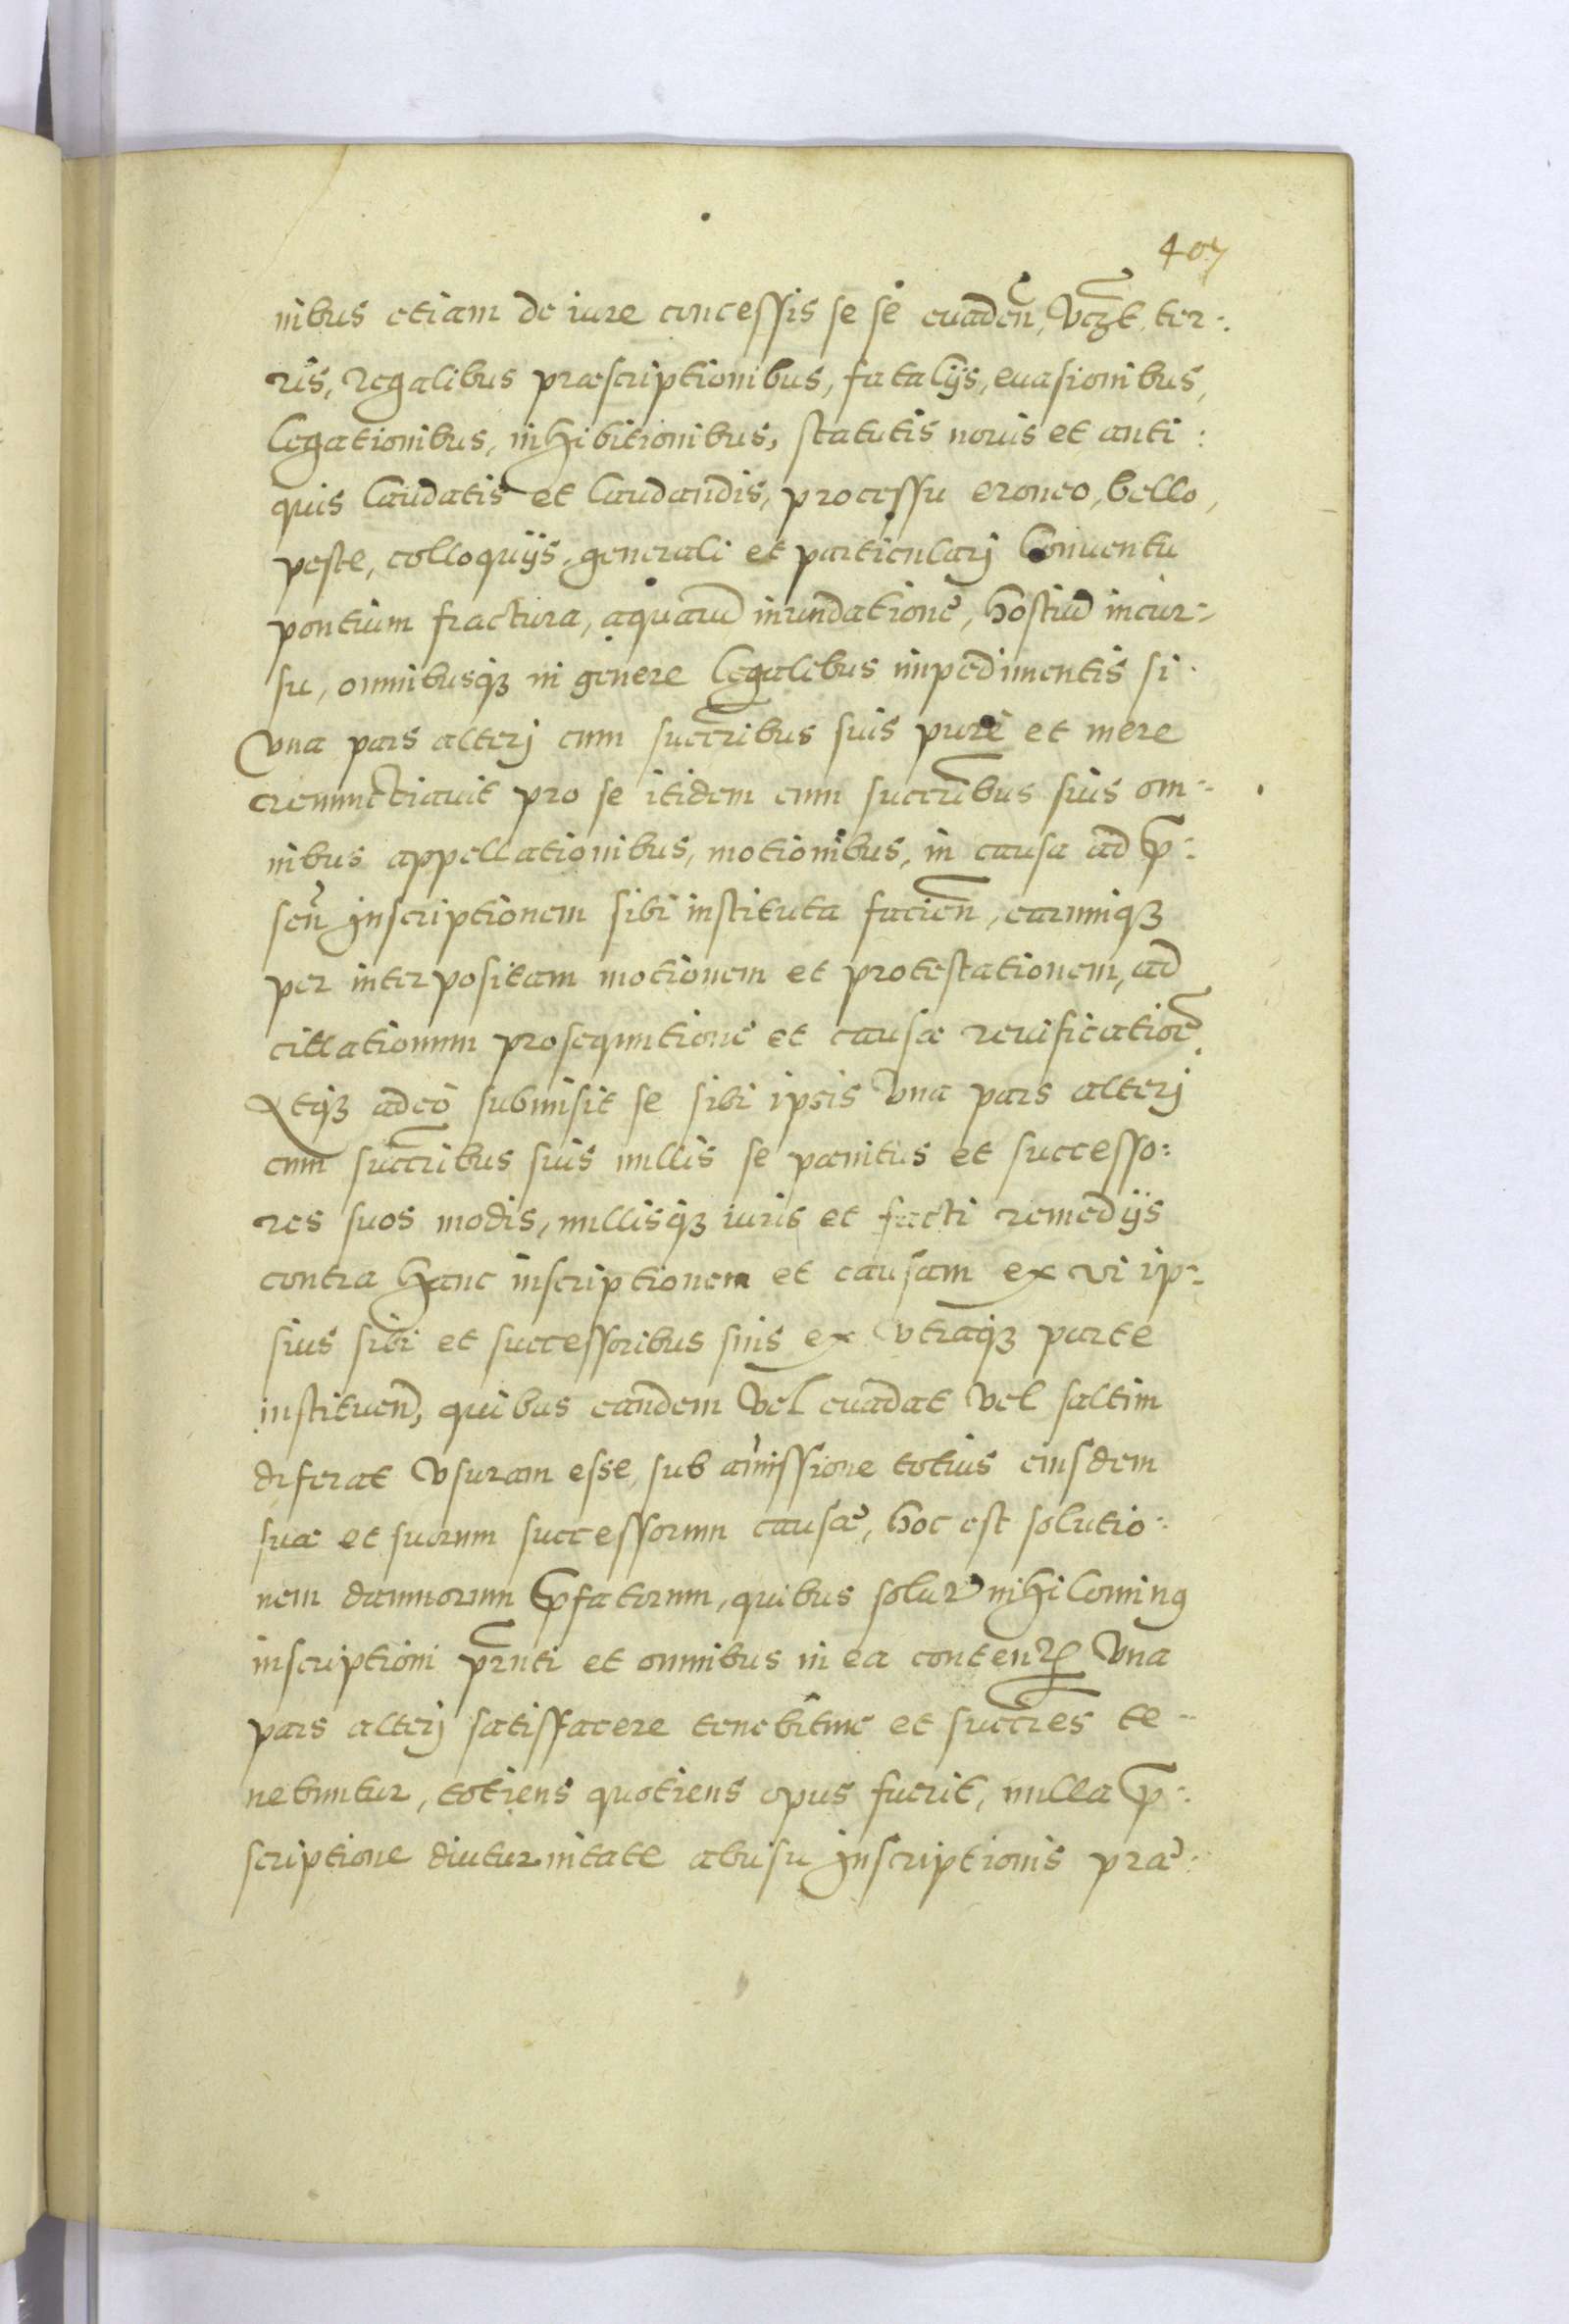 407
nibus etiam de iure concessis se se euaden̄, vczt ter:
ris, regalibus præscriptionibus, fatalijs, euasionibus,
legationibus, inhibitionibus, statutis nouis et anti:
quis laudatis et laudandis, processu eroneo, bello,
peste, colloquijs, generali et particularj Conuentu
pontium fractura, aquarū inundatione, hostiū incur:
su, omnibusq3 in genere legalibus impedimentis si
vna pars alterj cum succribus suis pure et mere
renunctiauit pro se itidem cum succribus suis om:
nibus appellationibus, motionibus, in causa ad p̄:
sen̄ jnscriptionem sibi instituta facien̄, earumq3
per interpositam motionem et protestationem, ad
cittationum prosequutione et causæ reuificatioē
Atq3 adeo submisit se sibi ipsis vna pars alterj
cum succribus suis nullis se pænitus et successo:
res suos modis, nullisq3 iuris et facti remedijs
contra hanc inscriptionem et causam ex vi ip:
sius sibi et successoribus suis ex vtraq3 parte
instituen̄, quibus eandem vel euadat vel saltim
diferat vsuram esse, sub amissione totius eiusdem
suæ et suorum successorum causæ, hoc est solutio:
nem damnorum p̄fatorum, quibus solut nihilominus
inscriptioni prnti et omnibus in ea conten vna
pars alterj satisfacere tenebitur et succres te:
nebuntur, totiens quotiens opus fuerit, nulla p̄:
scriptione diuturnitate abusu jnscriptionis præ: